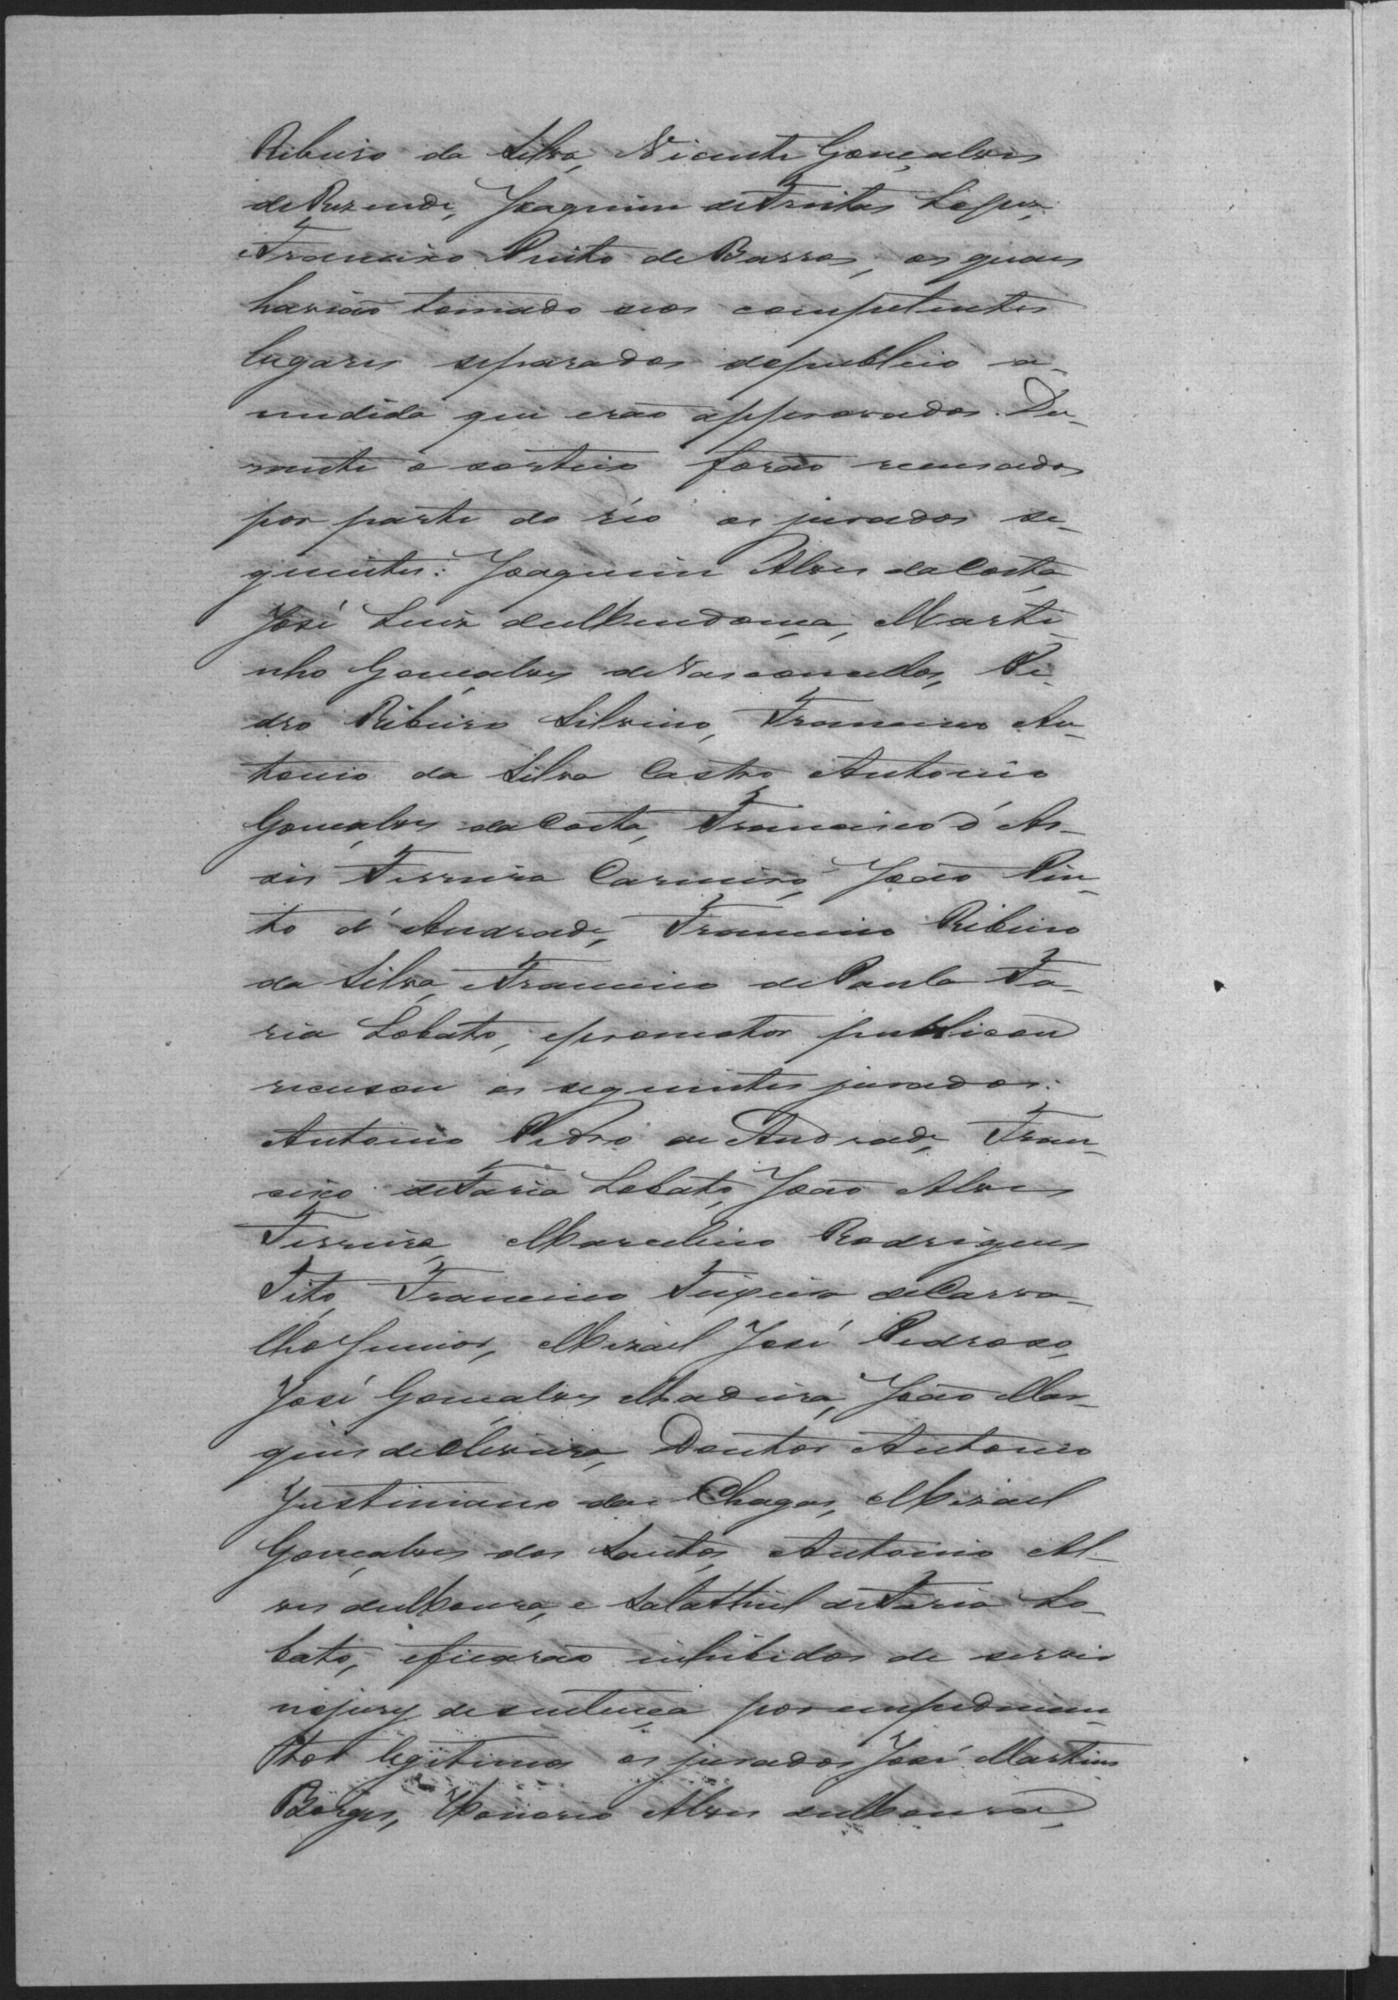 Ribeiro da Silva, Vicente Gonçalves
de Rezende, Joaquim de Freitas Lopes,
Francisco Pinto de Barros, os quaes
havião tomado seos competentes
lugares separados do publico a
medida que erão approvados. Du-
rante o sorteio forão recusados
por parte do réo os jurados se-
guintes: Joaquim Alves da Costa,
José Luiz de Mendonça, Marti-
nho Gonçalves de Vasconcellos, Pe-
dro Ribeiro Silvino, Francisco An-
tonio da Silva Castro Antonio
Gonçalves da Costa, Francisco d'As-
sis Ferreira Carneiro, João Pin-
to d'Andrade, Francisco Ribeiro
da Silva, Francisco de Paula Fa-
ria Lobato, e promotor publico
recusou os seguintes jurados:
Antonio Pedro de Andrade, Fran-
cisco de Faria Lobato, João Alves
Ferreira, Marcelino Rodrigues
Tito, Francisco Teixeira de Carva-
lho Junior, Mizael José Pedroso,
José Gonçalves Madeira, João Mar-
ques de Oliveira, Doutor Antonio
Justiniano das Chagas, Mizael
Gonçalves dos Santos, Antonio Al-
ves de Moura, e Salathiel de Faria Lo-
bato, e ficarão inhibidos de servir
no jury de sentença por empedimen-
tos legitimos os jurados José Martins
Borges, Honorio Alves de Moura,